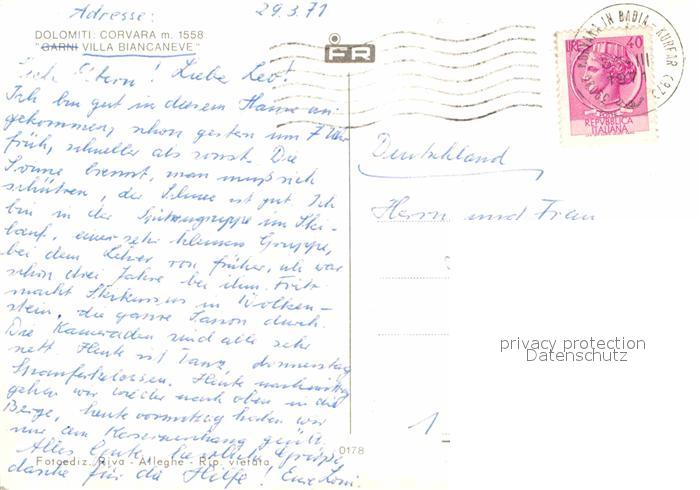 Adresse: 29.3.71
DOLOMITI: CORVARA m. 1558
"GARNI VILLA BIANCANEVE"
Liebe Eltern! Liebe Leo!
Ich bin gut in diesem Hause an-
gekommen, schon gestern um 7 Uhr
früh, schneller als sonst. Die
Sonne brennt, man muß sich
schützen, der Schnee ist gut. Ich
bin in der Spitzengruppe im Ski-
lauf, einer sehr kleinen Gruppe,
bei dem Lehrer von früher, ich war
schon drei Jahre bei ihm. Fritz
macht Skikursus in Wolken-
stein, die ganze Saison durch.
Die Kameraden sind alle sehr
nett. Heute ist Tanz, donnerstag
Spanferkelessen. Heute nachmittag
gehen wir wieder nach oben in die
Berge, heute vormittag haben wir
nur am Kasernenhang geübt.
Alles Gute, herzliche Grüße,
danke für die Hilfe! Eure
Fotoediz. Riva - Alleghe - Rip. vietata
0178
FR
LIRE 40
POSTE
REPVBBLICA
ITALIANA
CORVARA IN BADIA - KURFAR (BZ)
Deutschland
Herrn und Frau
privacy protection
Datenschutz
1